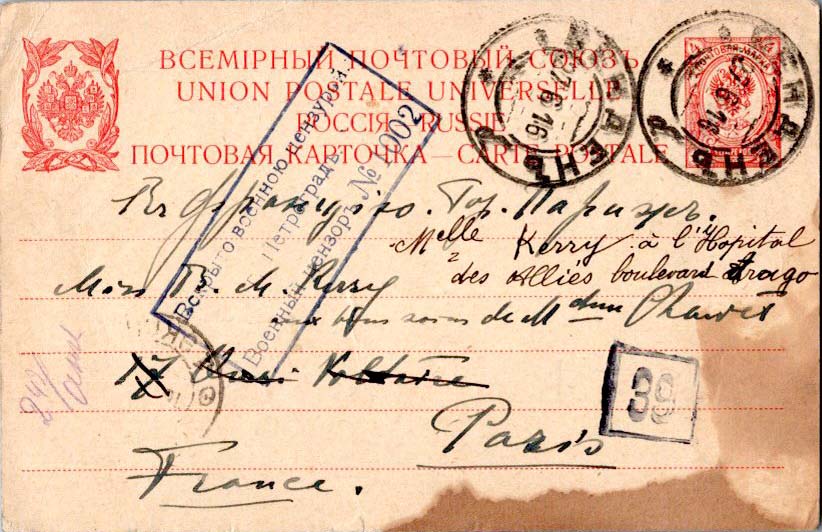 ВСЕМІРНЫЙ ПОЧТОВЫЙ СОЮЗЪ
UNION POSTALE UNIVERSELLE
РОССІЯ RUSSIE
ПОЧТОВАЯ КАРТОЧКА — CARTE POSTALE
ПОЧТОВАЯ МАРКА
Вскрыто военною цензурой.
Петроградъ
Военный цензоръ № 1002
6 16
6 16
Въ Францію. Гор. Парижъ.
Melle Kerry à l'Hopital
des Alliés boulevard Arago
Miss B. M. Kerry
aux bons soins de Mdme
17 Quai Voltaire
39
Paris
France.